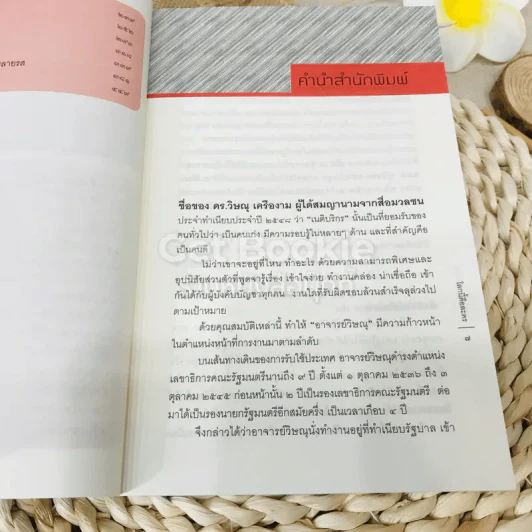 คำนำสำนักพิมพ์
ชื่อของ ดร.วิษณุ เครืองาม ผู้ได้สมญานามจากสื่อมวลชน
ประจำทำเนียบประจำปี ๒๕๔๘ ว่า "เนติบริกร" นั้นเป็นที่ยอมรับของ
คนทั่วไปว่า เป็นคนเก่ง มีความรอบรู้ในหลายๆ ด้าน และที่สำคัญคือ
เป็นคนดี
ไม่ว่าเขาจะอยู่ที่ไหน ทำอะไร ด้วยความสามารถพิเศษและ
อุปนิสัยส่วนตัวที่พูดจารู้เรื่อง เข้าใจง่าย ทำงานคล่อง น่าเชื่อถือ เข้า
กันได้กับผู้บังคับบัญชาทุกคน งานใดที่รับผิดชอบล้วนสำเร็จลุล่วงไป
ตามเป้าหมาย
ด้วยคุณสมบัติเหล่านี้ ทำให้ "อาจารย์วิษณุ" มีความก้าวหน้า
ในตำแหน่งหน้าที่การงานมาตามลำดับ
บนเส้นทางเดินของการรับใช้ประเทศ อาจารย์วิษณุดำรงตำแหน่ง
เลขาธิการคณะรัฐมนตรีนานถึง ๙ ปี ตั้งแต่ ๑ ตุลาคม ๒๕๓๖ ถึง ๓
ตุลาคม ๒๕๔๕ ก่อนหน้านั้น ๒ ปีเป็นรองเลขาธิการคณะรัฐมนตรี ต่อ
มาได้เป็นรองนายกรัฐมนตรีอีกสมัยครึ่ง เป็นเวลาเกือบ ๔ ปี
จึงกล่าวได้ว่าอาจารย์วิษณุนั่งทำงานอยู่ที่ทำเนียบรัฐบาล เข้า
โลกนี้คือละคร
๗
Cat Bookie